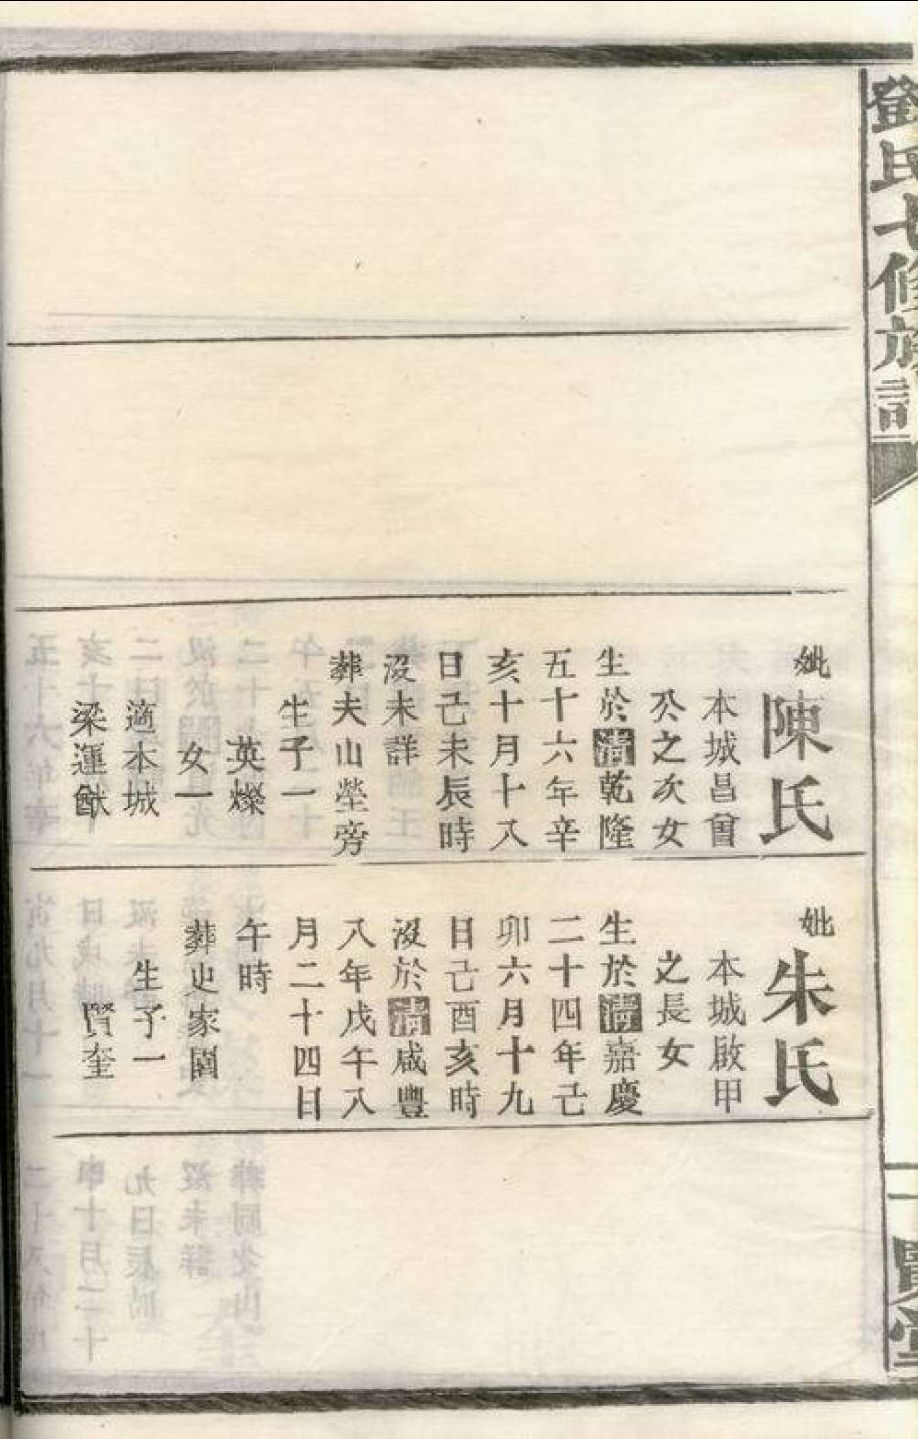 鄧氏七修族譜
妣陳氏
本城昌曾
公之次女
生於清乾隆
五十六年辛
亥十月十八
日己未辰時
沒未詳
葬夫山塋旁
生子一
英燦
女一
適本城
梁運猷
妣朱氏
本城啟甲
之長女
生於清嘉慶
二十四年己
卯六月十九
日己酉亥時
沒於清咸豐
八年戊午八
月二十四日
午時
葬史家園
生子一
賢奎
賢堂